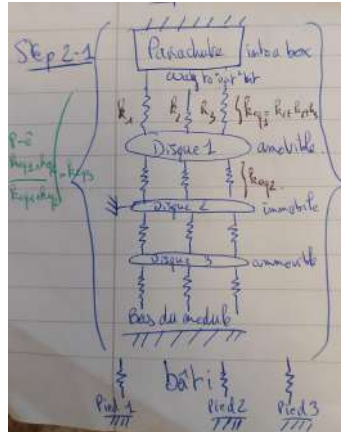 Step 2-1
Parachute into a box
k1 k2 k3 keq1 = k1+k2+k3
Disque 1 amovible.
keq2.
Disque 2 immobile
Disque 3 ammovible
Bas du module
bâti
Pied 1 Pied2 Pied3